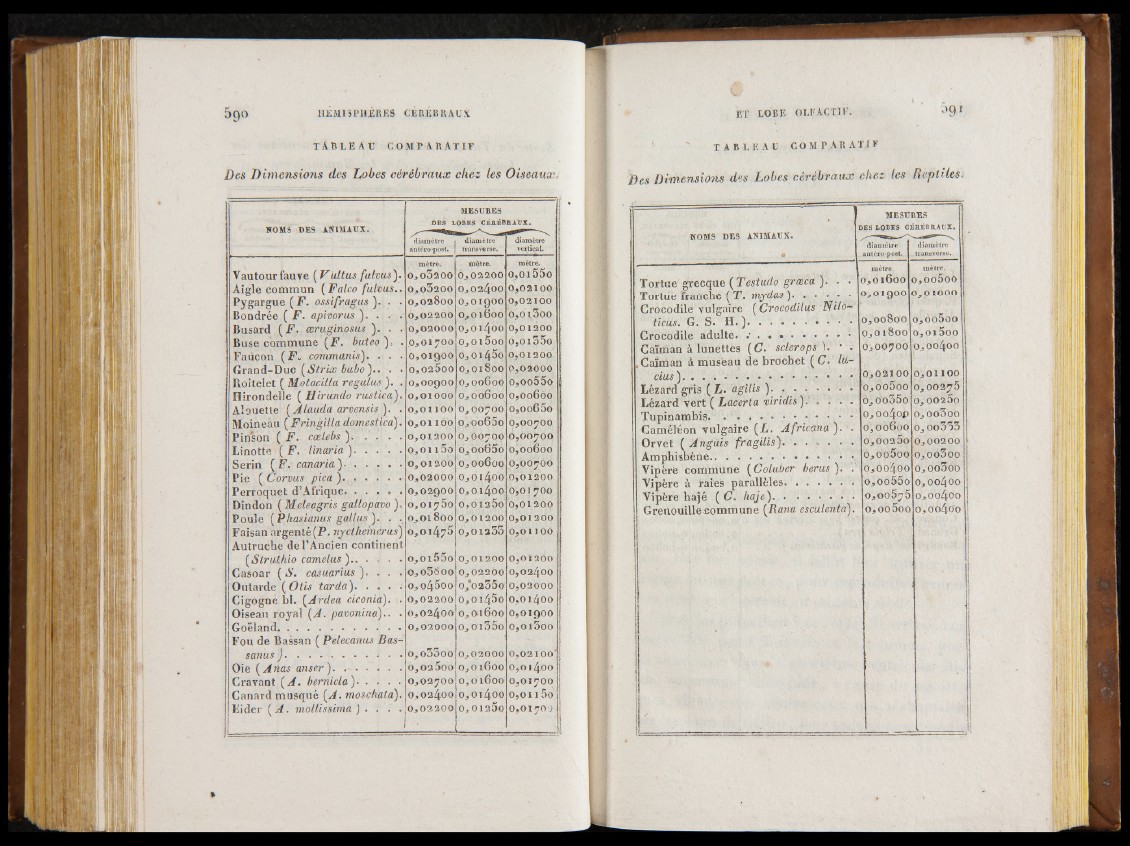 590 HÉMISPHÈRES CÉRÉBRAUX
TABLEAU COMPARATIF
Des Dimensions des Lobes cérébraux chez les Oiseaux.
NOMS DES ANIMAUX.
MESURES
DES LOBES CÉRÉBRAUX.
diamètre antéro-post. diamètre transverse. diamètre vertical.
mètre. mètre. mètre.
Vautour fauve (Vultus fulvus). 0,03200 0,02200 0,01550
Aigle commun (Falco fulvus.. 0,03200 0,02400 0,02100
Pygargue (F. ossifragus ). . . 0,02800 0,01900 0,02100
Bondrée (F. apivorus ). . . . 0,02200 0,01600 0,01300
Busard (F. æruginosus ). . . 0,02000 0,01400 0,01200
Buse commune (F. buteo ). . 0,01700 0,01500 0,01350
Faucon (F. communis). . . . 0,01900 0,01450 0,01200
Grand-Duc (Strix bubo).. . . 0,02500 0,01800 0,02000
Roitelet (Motacilla regulus ). . 0,00900 0,00600 0,00550
Hirondelle (Hirundo rustica). 0,01000 0,00600 0,00600
Alouette (Alauda arvensis ). . 0,01100 0,00700 0,00650
Moineau (Fringilla domestica). 0,01100 0,00650 0,00700
Pinson (F. cœlebs ). . . . . 0,01200 0,00700 0,00700
Linotte (F. linaria ). . . . . 0,01150 0,00650 0,00600
Serin (F. canaria ). . . . . . 0,01200 0,00600 0,00700
Pie (Corvus pica ). . . . . . 0,02000 0,01400 0,01200
Perroquet d'Afrique. . . . . . 0,02900 0,01400 0,01700
Dindon (Meleagris gallopavo ). 0,01750 0,01250 0,01200
Poule (Phasianus gallus ). . . 0,01800 0,01200 0,01200
Faisan argenté (P. nycthemerus) 0,01475 0,01233 0,01100
Autruche de l'Ancien continent
(Struthio camelus ).. . . . . 0,01550 0,01200 0,01200
Casoar (S. casuarius ). . . . 0,03800 0,02200 0,02400
Outarde (Otis tarda). . . . . 0,04500 0,02350 0,02000
Cigogne bl. (Ardea ciconia). . 0,02200 0,01450 0,01400
Oiseau royal (A. pavonina).. . 0,02400 0,01600 0,01900
Goëland. . . . . . . . . . . . 0,02000 0,01350 0,01300
Fou de Bassan (Pelecanus Bas-
sanus ). . . . . . . . . . . 0,03300 0,02000 0,02100
Oie (Anas anser ). . . . . . . 0,02500 0,01600 0,01400
Cravant (A. bernicla ). . . . . 0,02700 0,01600 0,01700
Canard musqué (A. moschata). 0,02400 0,01400 0,01150
Eider (A. mollissima ) . . . . 0,02200 0,01250 0,01700
ET LOBE OLFACTIF. 591
TABLEAU COMPARATIF
Des Dimensions des Lobes cérébraux chez les Reptiles.
NOMS DES ANIMAUX.
MESURES
DES LOBES CÉRÉBRAUX.
diamètre antéro-post. diamètre transverse.
mètre. mètre.
Tortue grecque (Testudo græca ). . . 0,01600 0,00500
Tortue franche (T. mydas ). . . . . . 0,01900 0,01000
Crocodile vulgaire (Crocodilus Nilo-
ticus. G. S. H.). . . . . . . . . 0,00800 0,00500
Crocodile adulte. . . . . . . . . . 0,01800 0,01500
Caïman à lunettes (C. sclerops ). . . 0,00700 0,00400
Caïman à museau de brochet (C. lu-
cius ). . . . . . . . . . . . . . . 0,02100 0,01100
Lézard gris (L. agilis ). . . . . . . . 0,00500 0,00275
Lézard vert (Lacerta viridis). . . . . 0,00350 0,00250
Tupinambis. . . . . . . . . . . . . 0,00400 0,00300
Caméléon vulgaire (L. Africana ). . 0,00600 0,00333
Orvet (Anguis fragilis). . . . . . . 0,00250 0,00200
Amphisbène.. . . . . . . . . . . . . 0,00500 0,00300
Vipère commune (Coluber berus ). . 0,00400 0,00300
Vipère à raies parallèles. . . . . . . 0,00550 0,00400
Vipère hajé (C. haje). . . . . . . . 0,00575 0,00400
Grenouille commune (Rana esculenta). 0,00500 0,00400